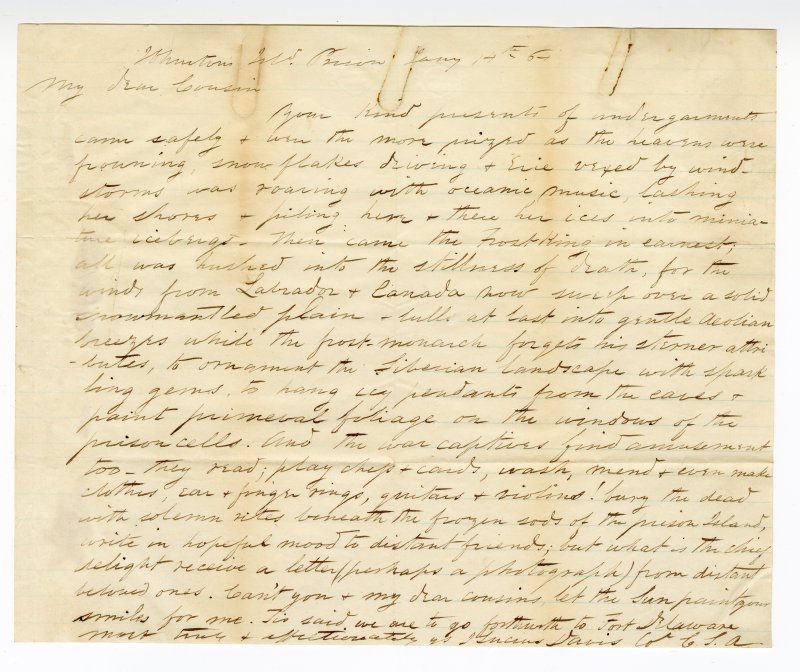 Isld. Prison Jany 14th 64
My dear Cousin
Your kind presents of undergarments
came safely & were the more prized as the heavens were
frowning, snow flakes driving & Erie vexed by wind-
storms was roaring with oceanic music, lashing
her shores & piling here & there her ices into minia-
ture icebergs. Then came the Frost King in earnest,
all was hushed into the stillness of death, for the
winds from Labrador & Canada now sweep over a solid
snowmantled plain - lulls at last into gentle Aeolian
breezes while the frost-monarch forgets his sterner attri-
-butes, to ornament the Siberian landscape with spark
ling gems, to hang icy pendants from the eaves &
paint primeval foliage on the windows of the
prison cells. And the war captives find amusement
too - they read, play chess & cards, wash, mend & even make
clothes, ear & finger rings, guitars & violins! bury the dead
with solemn rites beneath the frozen sods of the prison Island,
write in hopeful mood to distant friends; but what is the chief
delight receive a letter (perhaps a photograph) from distant
beloved ones. Can't you & my dear cousins, let the Sun paint your
smiles for me. Tis said we are to go forthwith to Fort Delaware
most truly & affectionately yr Lucius Davis Col C.S.A